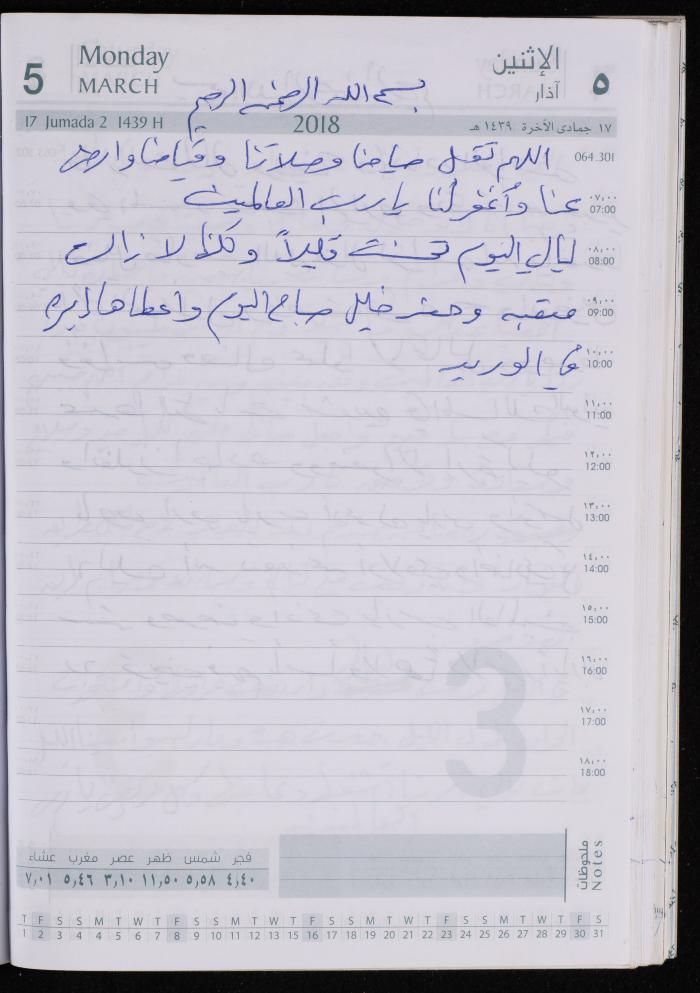 5 Monday MARCH
الإثنين آذار ٥
بسم الله الرحمن الرحيم
17 Jumada 2 1439 H 2018 ١٧ جمادى الآخرة ١٤٣٩ هـ
064.301
اللهم تقبل صيامنا وصلاتنا وقيامنا وارض
عنا وأغفر لنا يارب العالمين
٠٧,٠٠ 07:00
ليالي اليوم تحسنت قليلاً ولكن لا زالت
٠٨,٠٠ 08:00
متعبه وحضر خليل صباح اليوم واعطاها إبره
٠٩,٠٠ 09:00
في الوريد
١٠,٠٠ 10:00
١١,٠٠ 11:00
١٢,٠٠ 12:00
١٣,٠٠ 13:00
١٤,٠٠ 14:00
١٥,٠٠ 15:00
١٦,٠٠ 16:00
١٧,٠٠ 17:00
١٨,٠٠ 18:00
3
فجر شمس ظهر عصر مغرب عشاء
٤,٤٠ ٥,٥٨ ١١,٥٠ ٣,١٠ ٥,٤٦ ٧,٠١
ملحوظات
Notes
T F S S M T W T F S S M T W T F S S M T W T F S S M T W T F S
1 2 3 4 5 6 7 8 9 10 11 12 13 14 15 16 17 18 19 20 21 22 23 24 25 26 27 28 29 30 31